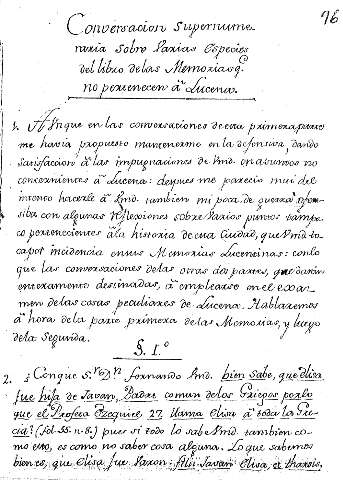 96
Conversacion Supernume-
raria Sobre Varias Especies
del libro de las Memorias q.e
no pertenecen â Lucena.
1. Aunque en las conversaciones de esta primera parte
me havia propuesto mantenerme en la defensiva, dando
satisfaccion â las impugnaciones de Vmd. en asuntos no
concernientes â Lucena: despues me parecio mui del
intento hacerle â Vmd. tambien mi poca de guerra ofen-
siba con algunas reflexiones sobre varios puntos tampo-
co pertenecientes â la historia de esta Ciudad, que Vmd. to-
ca por incidencia en sus Memorias Lucentinas: con lo
que las conversaciones de las otras dos partes, quedarán
enteramente destinadas, â emplearse en el exa-
men de las cosas peculiares de Lucena. Hablaremos
â hora de la parte primera de las Memorias, y luego
de la Segunda.
§. I.º
2. ¿Conque S.r D.n Fernando Vmd. bien sabe, que Elisa
fue hija de Javan, Padre comun de los Griegos por lo
que el Profeta Ezequiel, 27. llama Elisa â toda la Gre-
cia? (fol. 55. n. 8.) pues si todo lo sabe Vmd. tambien co-
mo esto, es como no saber cosa alguna. Lo que sabemos
bien es, que Elisa fue Varon: Filii Javan: Elisa, et tharsis,